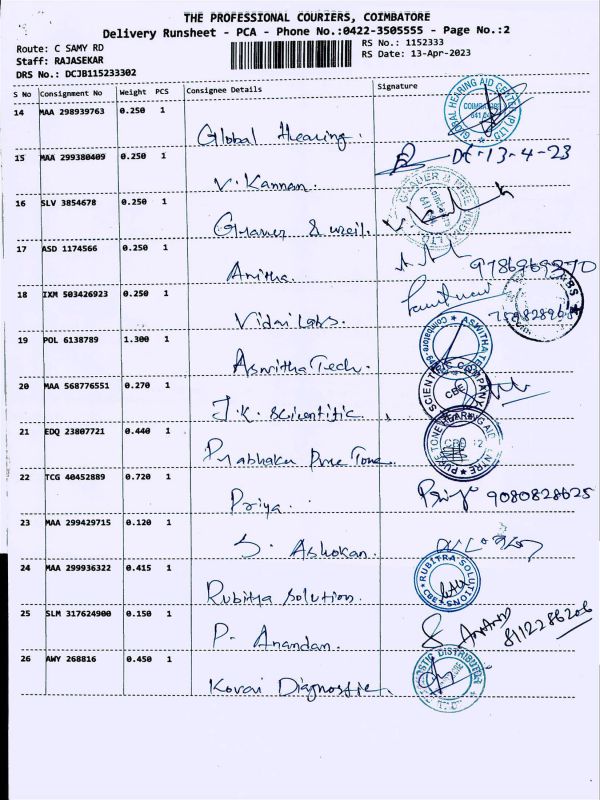 THE PROFESSIONAL COURIERS, COIMBATORE
Delivery Runsheet - PCA - Phone No.:0422-3505555 - Page No.:2
Route: C SAMY RD
RS No.: 1152333
Staff: RAJASEKAR
RS Date: 13-Apr-2023
DRS No.: DCJB115233302
S No Consignment No Weight PCS Consignee Details Signature
14 MAA 298939763 0.250 1
Global Hearing.
GLOBAL HEARING AID CENTER (P) LTD
COIMBATORE
15 MAA 299380409 0.250 1
V. Kannan.
Dt-13-4-23
16 SLV 3854678 0.250 1
17 ASD 1174566 0.250 1
Anitha.
9786969270
18 IXM 503426923 0.250 1
19 POL 6138789 1.300 1
Aswitha Tech.
20 MAA 568776551 0.270 1
J.K. Scientific
SCIENTIFIC COMPANY
CBE
21 EDQ 23807721 0.440 1
Prabhakar Pure Tone
22 TCG 40452889 0.720 1
Priya.
Priya 9080828625
23 MAA 299429715 0.120 1
S. Ashokan.
24 MAA 299936322 0.415 1
Rubitra Solution.
RUBITRA SOLUTIONS
CBE
25 SLM 317624900 0.150 1
P. Anandan.
ANAND
8112286206
26 AWY 268816 0.450 1
Kovai Diagnostic